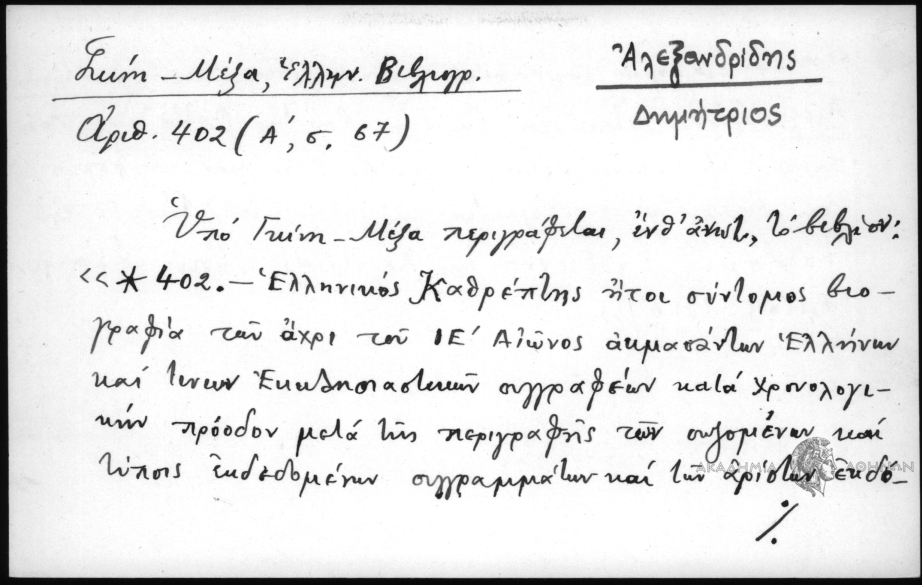 Γκίνη – Μέξα, Ἑλλην. Βιβλιογρ.
Ἀριθ. 402 (Α΄, σ. 67)
Ἀλεξανδρίδης
Δημήτριος
Ὑπό Γκίνη – Μέξα περιγράφεται, ἔνθ' ἀνωτ., τό βιβλίον:
«* 402. – Ἑλληνικός Καθρέπτης ἤτοι σύντομος βιο-
γραφία τῶν ἄχρι τοῦ ΙΕ΄ Αἰῶνος ἀκμασάντων Ἑλλήνων
καί τινων Ἐκκλησιαστικῶν συγγραφέων κατά χρονολογι-
κήν πρόοδον μετά τῆς περιγραφῆς τῶν σωζομένων καί
τύποις ἐκδεδομένων συγγραμμάτων καί τῶν ἀρίστων ἐκδό-
ΑΚΑΔΗΜΙΑ ΑΘΗΝΩΝ
./.